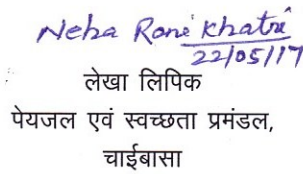 Neha Rani Khatri
22/05/17
लेखा लिपिक
पेयजल एवं स्वच्छता प्रमंडल,
चाईबासा